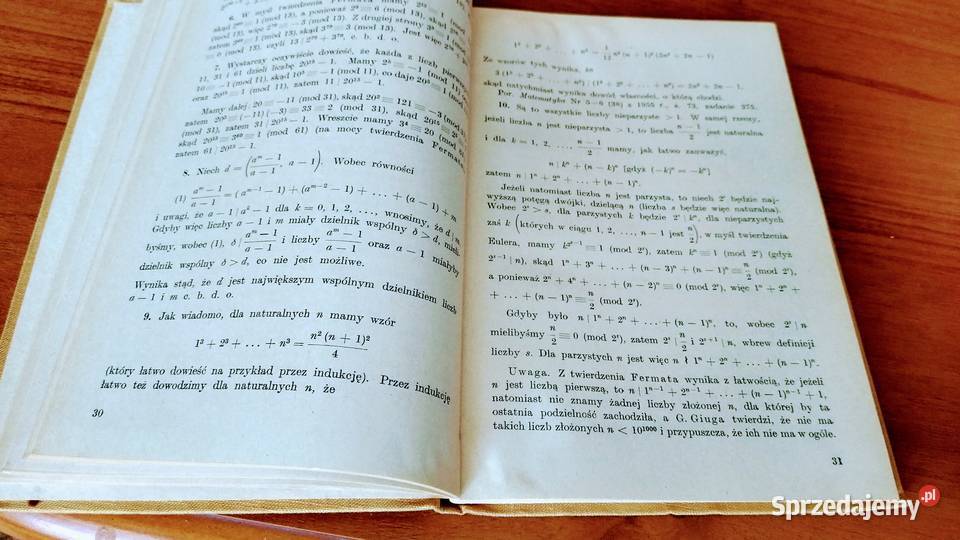 6. W myśl twierdzenia Fermata mamy
skąd 2⁶⁰ ≡ 1 (mod 13), a ponieważ 2⁶
zatem c. b. d. o.
7. Wystarczy oczywiście dowieść, że każda z liczb pierwszych
11, 31 i 61 dzieli liczbę 20¹⁵ − 1. Mamy 2⁵ ≡ −1 (mod 11),
10 ≡ −1 (mod 11), skąd 10⁵ ≡ −1 (mod 11), co daje 20⁵ ≡ 1 (mod 11)
oraz 20¹⁵ ≡ 1 (mod 11), zatem 11 | 20¹⁵ − 1.
Mamy dalej 20 ≡ −11 (mod 31), skąd 20² ≡ 121 ≡ −3 (mod 31),
zatem 20³ ≡ (−11)(−3) ≡ 33 ≡ 2 (mod 31), skąd 20¹⁵ ≡ 2⁵ ≡ 1
(mod 31), zatem 31 | 20¹⁵ − 1. Wreszcie mamy 3⁴ ≡ 20 (mod 61),
skąd 20¹⁵ ≡ 3⁶⁰ ≡ 1 (mod 61) (na mocy twierdzenia Fermata),
zatem 61 | 20¹⁵ − 1.
8. Niech d = ((aᵐ − 1)/(a − 1), a − 1). Wobec równości
(1) (aᵐ − 1)/(a − 1) = (aᵐ⁻¹ − 1) + (aᵐ⁻² − 1) + ... + (a − 1) + m
i uwagi, że a − 1 | aᵏ − 1 dla k = 0, 1, 2, ..., wnosimy, że d | m.
Gdyby więc liczby a − 1 i m miały dzielnik wspólny δ > d, mieli-
byśmy, wobec (1), δ | (aᵐ − 1)/(a − 1) i liczby (aᵐ − 1)/(a − 1) oraz a − 1 miałyby
dzielnik wspólny δ > d, co nie jest możliwe.
Wynika stąd, że d jest największym wspólnym dzielnikiem liczb
a − 1 i m c. b. d. o.
9. Jak wiadomo, dla naturalnych n mamy wzór
1³ + 2³ + ... + n³ = n² (n + 1)²/4
(który łatwo dowieść na przykład przez indukcję). Przez indukcję
łatwo też dowodzimy dla naturalnych n, że
30
1⁵ + 2⁵ + ... + n⁵ = 1/12 n² (n + 1)² (2n² + 2n − 1)
Ze wzorów tych wynika, że
3 (1⁵ + 2⁵ + ... + n⁵) : (1³ + 2³ + ... + n³) = 2n² + 2n − 1,
skąd natychmiast wynika dowód własności, o którą chodzi.
Por. Matematyka Nr 5–6 (38) z 1955 r., s. 73, zadanie 375.
10. Są to wszystkie liczby nieparzyste > 1. W samej rzeczy,
jeżeli liczba n jest nieparzysta > 1, to liczba (n − 1)/2 jest naturalna
i dla k = 1, 2, ..., (n − 1)/2 mamy, jak łatwo zauważyć,
n | kⁿ + (n − k)ⁿ [gdyż (−k)ⁿ = −kⁿ]
zatem n | 1ⁿ + 2ⁿ + ... + (n − 1)ⁿ.
Jeżeli natomiast liczba n jest parzysta, to niech 2ˢ będzie naj-
wyższą potęgą dwójki, dzielącą n (liczba s będzie więc naturalna).
Wobec 2ˢ > s, dla parzystych k będzie 2ˢ | kⁿ, dla nieparzystych
zaś k (których w ciągu 1, 2, ..., n − 1 jest n/2), w myśl twierdzenia
Eulera, mamy k^(2ˢ⁻¹) ≡ 1 (mod 2ˢ), zatem kⁿ ≡ 1 (mod 2ˢ) (gdyż
2ˢ⁻¹ | n), skąd 1ⁿ + 3ⁿ + ... + (n − 3)ⁿ + (n − 1)ⁿ ≡ n/2 (mod 2ˢ),
a ponieważ 2ⁿ + 4ⁿ + ... + (n − 2)ⁿ ≡ 0 (mod 2ˢ), więc 1ⁿ + 2ⁿ +
+ ... + (n − 1)ⁿ ≡ n/2 (mod 2ˢ).
Gdyby było n | 1ⁿ + 2ⁿ + ... + (n − 1)ⁿ, to, wobec 2ˢ | n
mielibyśmy n/2 ≡ 0 (mod 2ˢ), zatem 2ˢ | n/2 i 2ˢ⁺¹ | n, wbrew definicji
liczby s. Dla parzystych n jest więc n ∤ 1ⁿ + 2ⁿ + ... + (n − 1)ⁿ.
Uwaga. Z twierdzenia Fermata wynika z łatwością, że jeżeli
n jest liczbą pierwszą, to n | 1ⁿ⁻¹ + 2ⁿ⁻¹ + ... + (n − 1)ⁿ⁻¹ + 1,
natomiast nie znamy żadnej liczby złożonej n, dla której by ta
ostatnia podzielność zachodziła, a G. Giuga twierdzi, że nie ma
takich liczb złożonych n < 10¹⁰⁰⁰ i przypuszcza, że ich nie ma w ogóle.
31
Sprzedajemy.pl